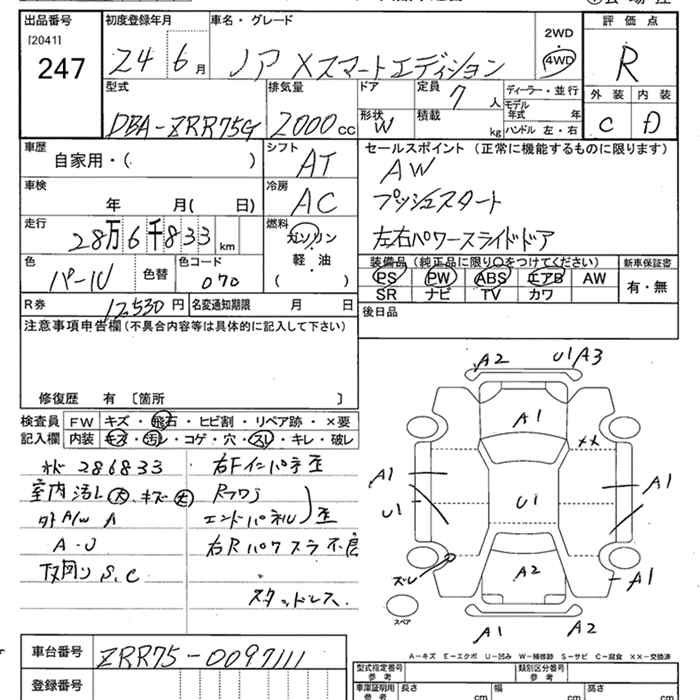 出品番号 初度登録年月 車名・グレード 2WD 評価点
[2041]
247 24 6月 ノア Xスマートエディション 4WD R
型式 排気量 ドア 定員 7人 ディーラー・並行 外装 内装
DBA-ZRR75G 2000cc 形状 W 積載 kg モデル年式 年 C D
ハンドル 左・右
車歴 シフト セールスポイント (正常に機能するものに限ります)
自家用・( ) AT AW
車検 冷房 プッシュスタート
年 月( 日) AC
走行 燃料 左右パワースライドドア
28万6千833km ガソリン
軽・油
( )
色 色替 色コード 装備品(純正品に限り○をつけてください) 新車保証書
パール 070 PS PW ABS エアB AW 有・無
SR ナビ TV カワ
R券 12,530円 名変通知期限 月 日 後日品
注意事項申告欄(不具合内容等は具体的に記入して下さい)
修復歴 有 〔箇所 〕
検査員 FW キズ・飛石・ヒビ割・リペア跡・×要
記入欄 内装 キズ・汚レ・コゲ・穴・スレ・キレ・破レ
286833 右Fインパネ歪
室内汚レ(大)、キズ Rフロア
エンドパネル 歪
外A/W A
A-U 右Rパワスラ不良
下回り S、C
スタッドレス
A2 U1 A3
A1
××
A1 A1
U1 U1
ズレ A2 A1
スペア
A1 A2
A-キズ E-エクボ U-凹み W-補修跡 S-サビ C-腐食 ××-交換済
車台番号 ZRR75-0097111
登録番号
型式指定番号 参考 類別区分番号 参考
車庫証明用 参考 長さ cm 幅 cm 高さ cm